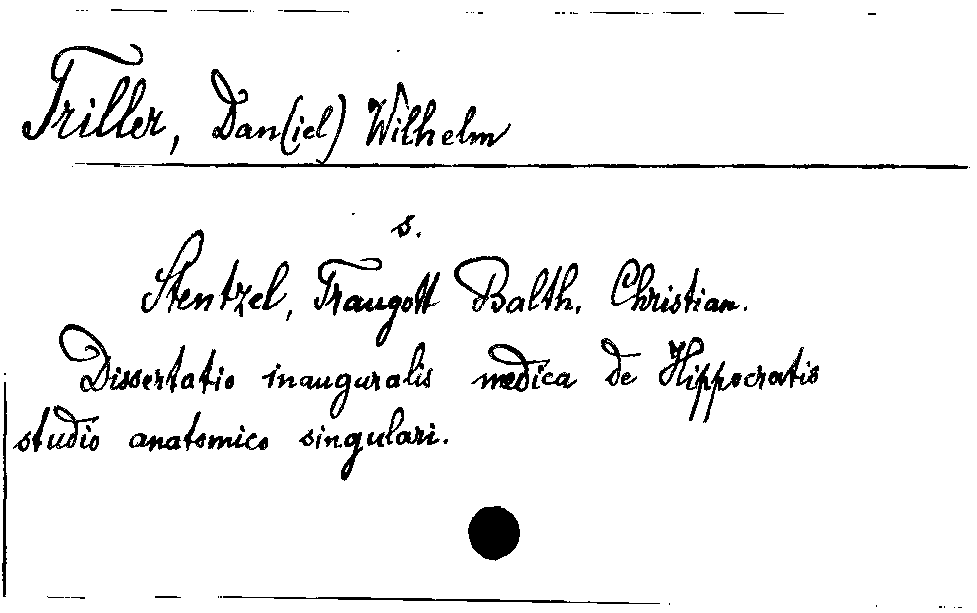 Triller, Dan(iel) Wilhelm
s.
Stentzel, Traugott Balth. Christian.
Dissertatio inauguralis medica de Hippocratis
studio anatomico singulari.